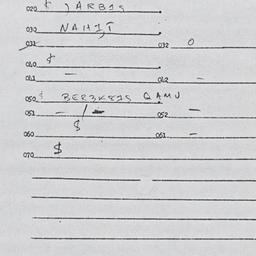 020 $ JARBIS
030 NAHIT
031 032 0
040 $
041 - 042 -
050 $ BEREKETS QAMU
051 - / - 052 -
060 $ 061 -
070 $